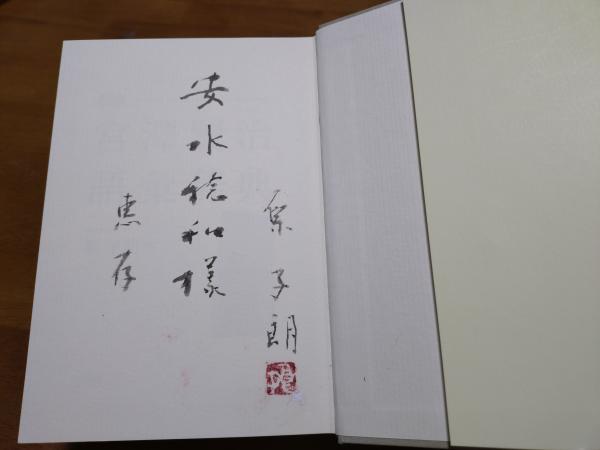 原子朗
安水稔和様
恵存